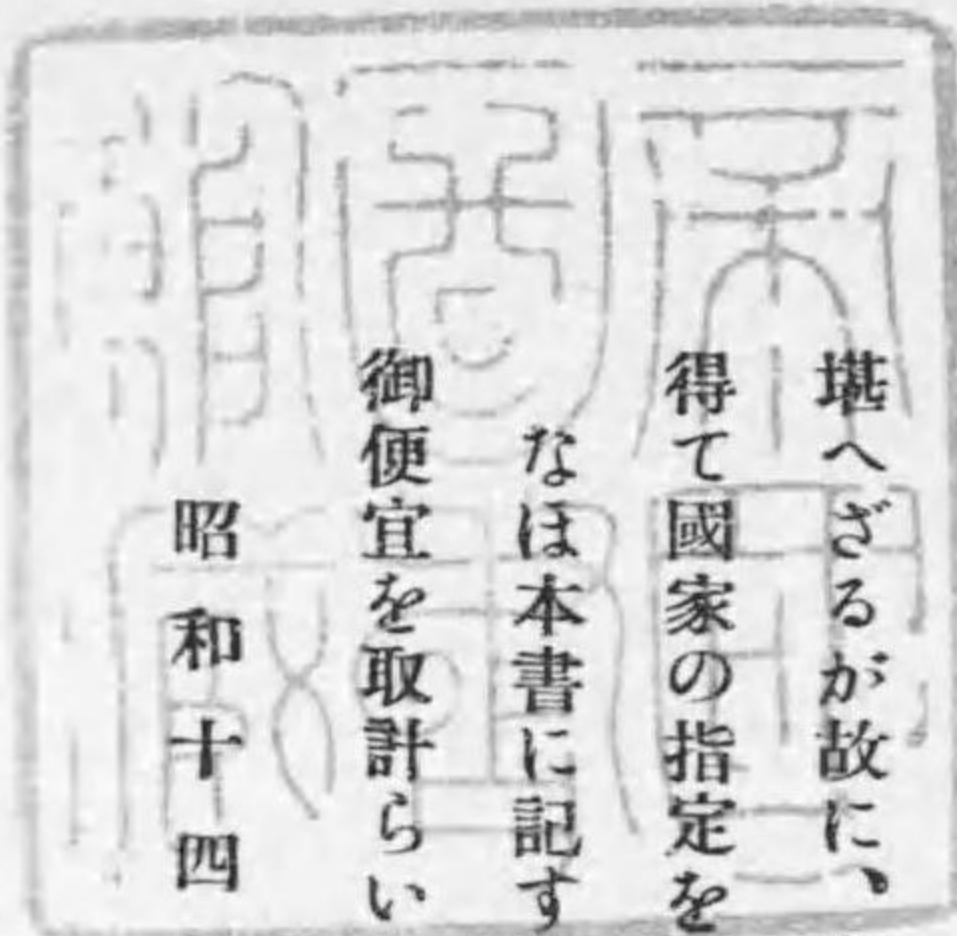 堪へざるが故に、
得て國家の指定を
なほ本書に記す
御便宜を取計らい
昭和十四